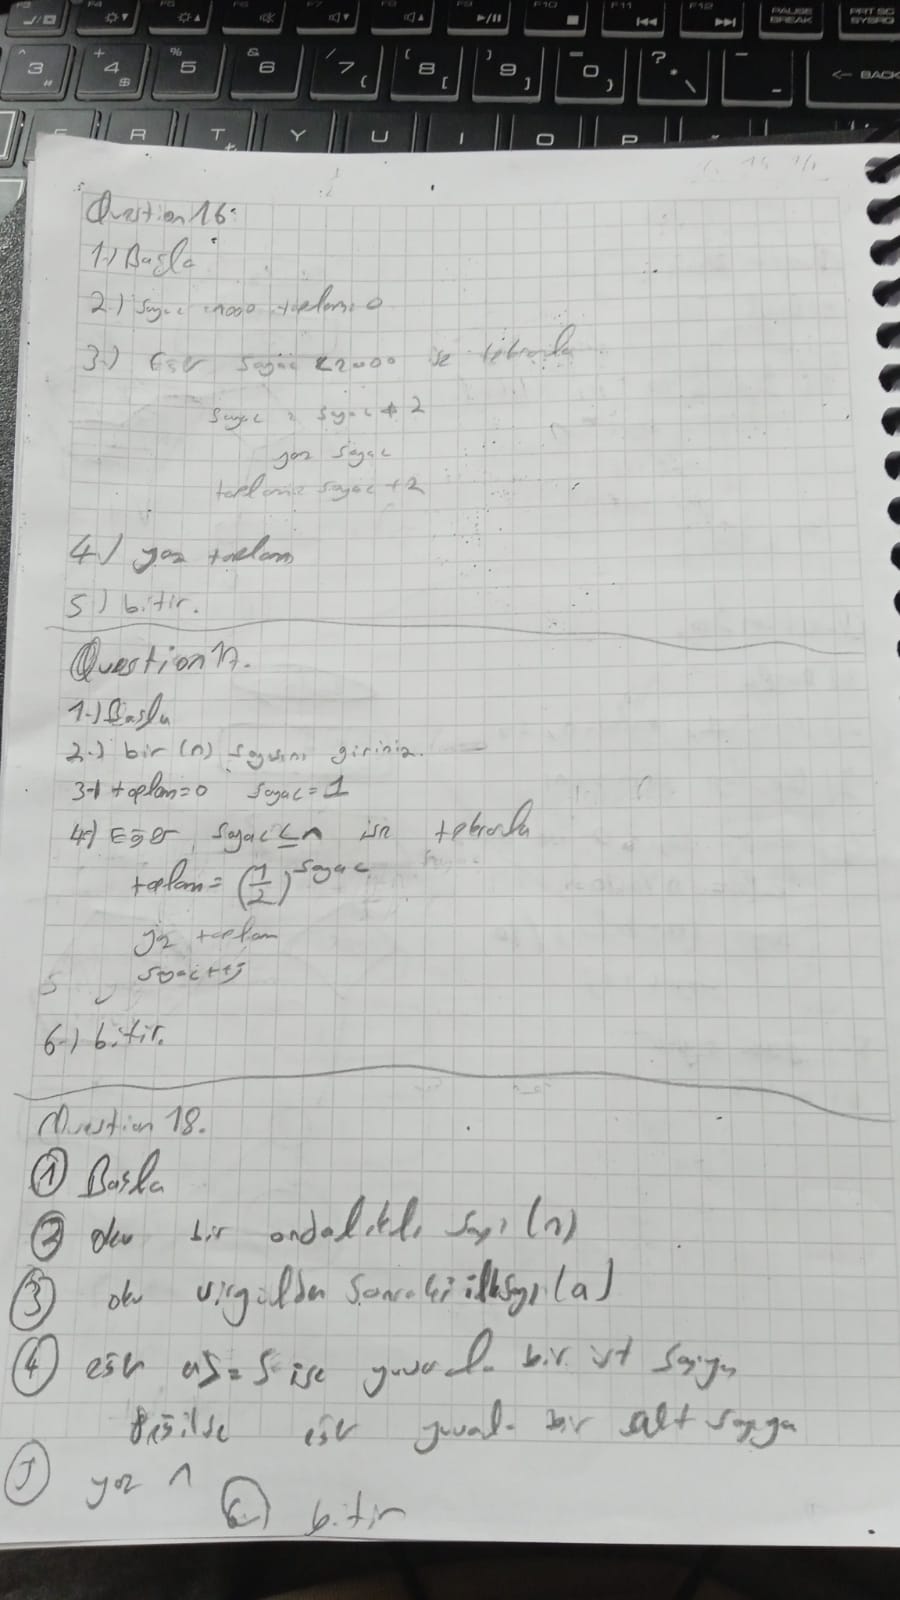 Question 16:
1-) Başla
2-) Sayac =1000 toplam=0
3-) Eğer sayac <2000 ise tekrarla
sayac = sayac + 2
yaz sayac
toplam= sayac +2
4-) yaz toplam
5) bitir.
Question 17.
1-) Başla
2-) bir (n) sayısını giriniz.
3-) toplam=0 sayac=1
4-) Eğer sayac≤n ise tekrarla
toplam= (1/2)^sayac
yaz toplam
sayac++;
5
6-) bitir.
Question 18.
① Başla
② oku bir ondalıklı sayı (n)
③ oku virgülden sonraki ilk sayı (a)
④ eğer ise yuvarla bir üst sayıya
değilse eğer yuvarla bir alt sayıya
⑤ yaz n
⑥) bitir